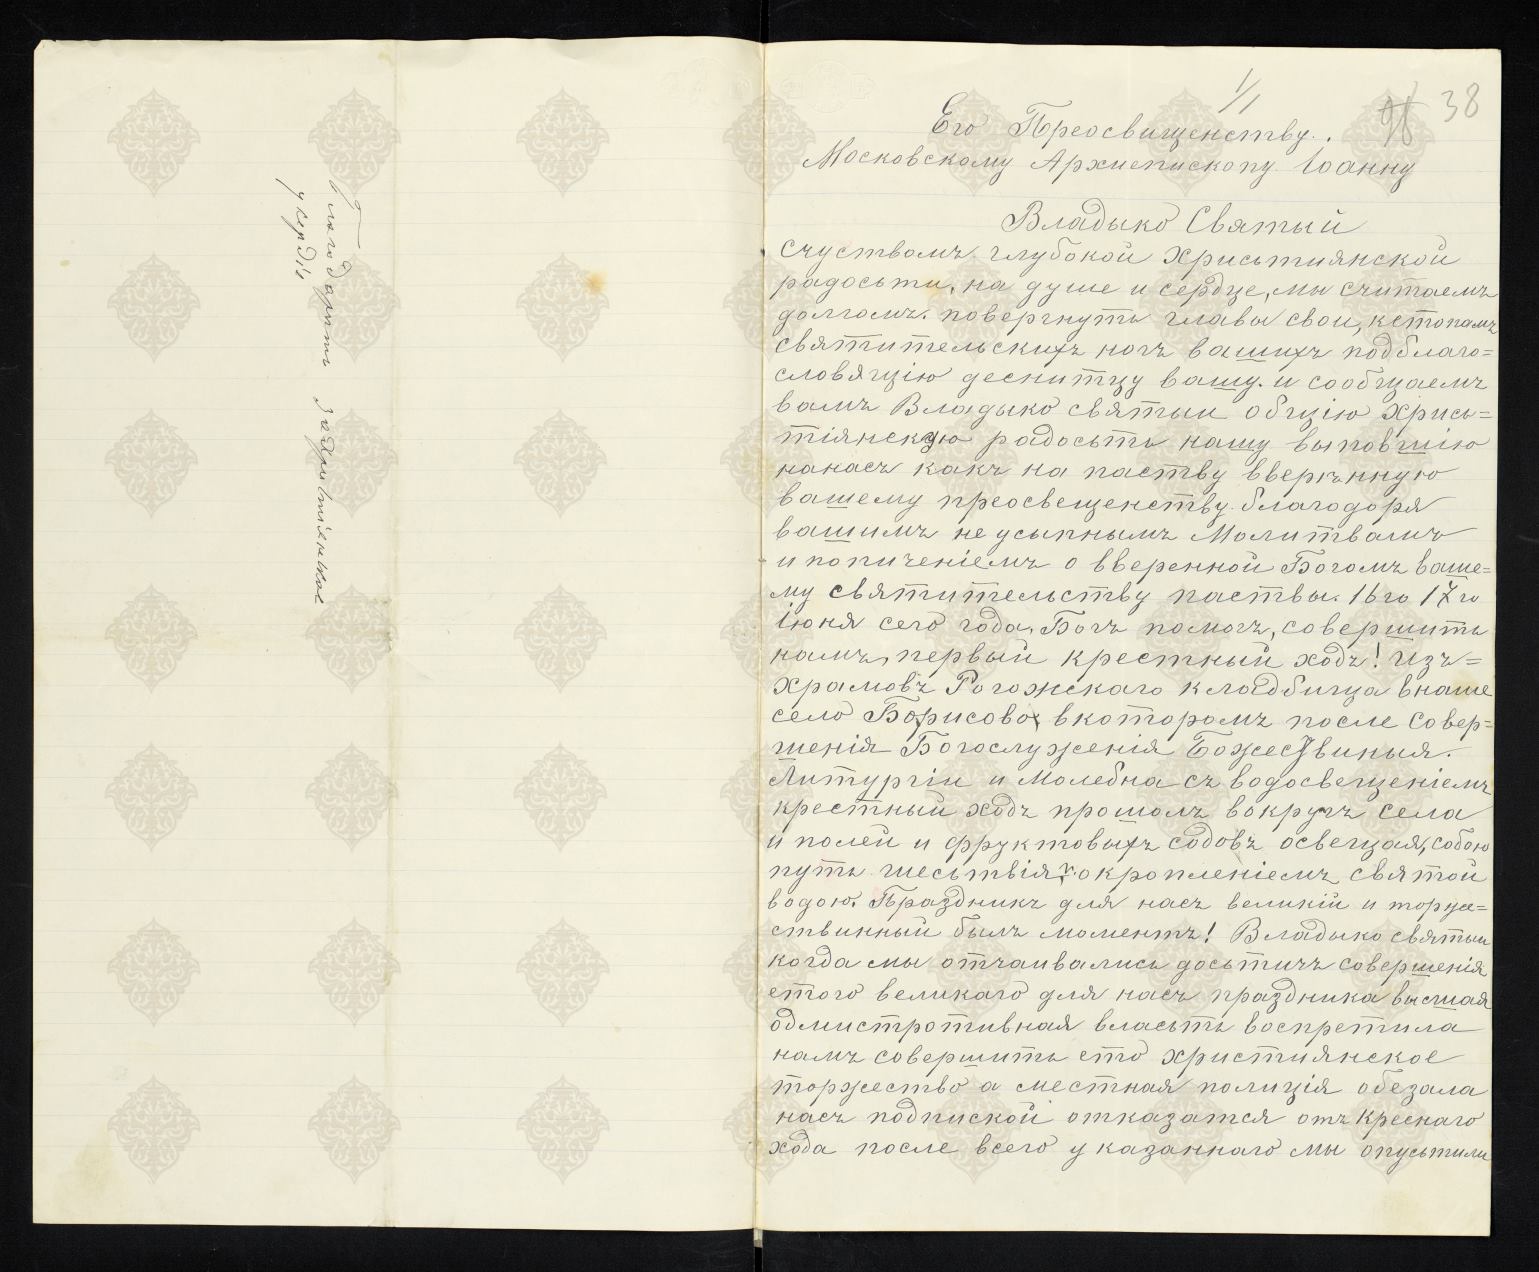 Благодарить за христіянское
усердіе
1/1
98 38
Его Преосвищенству.
Московскому Архиепископу Іоанну
Владыко Святый
Счуством глубокой христьиянской
радосьти, на душе и сердце, мы считаемъ
долгомъ. повергнуть главы свои, кстопамъ
святительскихъ ногъ вашихъ подблаго=
словящію десницу вашу. и сообщаемъ
вамъ Владыко святыи общію хрись=
тіянскую радосьть нашу выповшію
нанасъ какъ на паству вверѣнную
вашему преосвещенству благодоря
вашимъ не усыпнымъ Молитвамъ
и попиченіемъ о вверенной Богомъ ваше=
му святительству паствы. 16го 17го
Іюня сего года, Богъ помогъ, совершить
намъ, первый крестный ходъ! Изъ=
храмовъ Рогожскаго кладбища внаше
село Борисово, вкоторомъ после совер=
шенія Богослуженія Божествиныя.
Литургіи и Молебна съ водосвещеніемъ
крестный ходъ прошолъ вокругъ села
и полей и фруктовыхъ садовъ освещая, собою
путь шесьтвія окропленіемъ святой
водою. Праздникъ для насъ великій и торже=
ствинный былъ моментъ! Владыко святыи
когда мы отчаивались досьтичъ совершенія
етого великаго для насъ праздника высшая
одмистротивная власьть воспретила
намъ совершить ето християнское
торжество а местная полиція обезала
насъ подпиской отказатся отъ креснаго
хода после всего указаннаго мы опусьтили